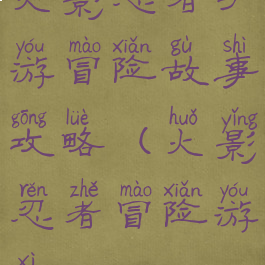 火影忍者手
yóu mào xiǎn gù shì
游冒险故事
gōng lüè huǒ yǐng
攻略（火影
rěn zhě mào xiǎn yóu
忍者冒险游
xì